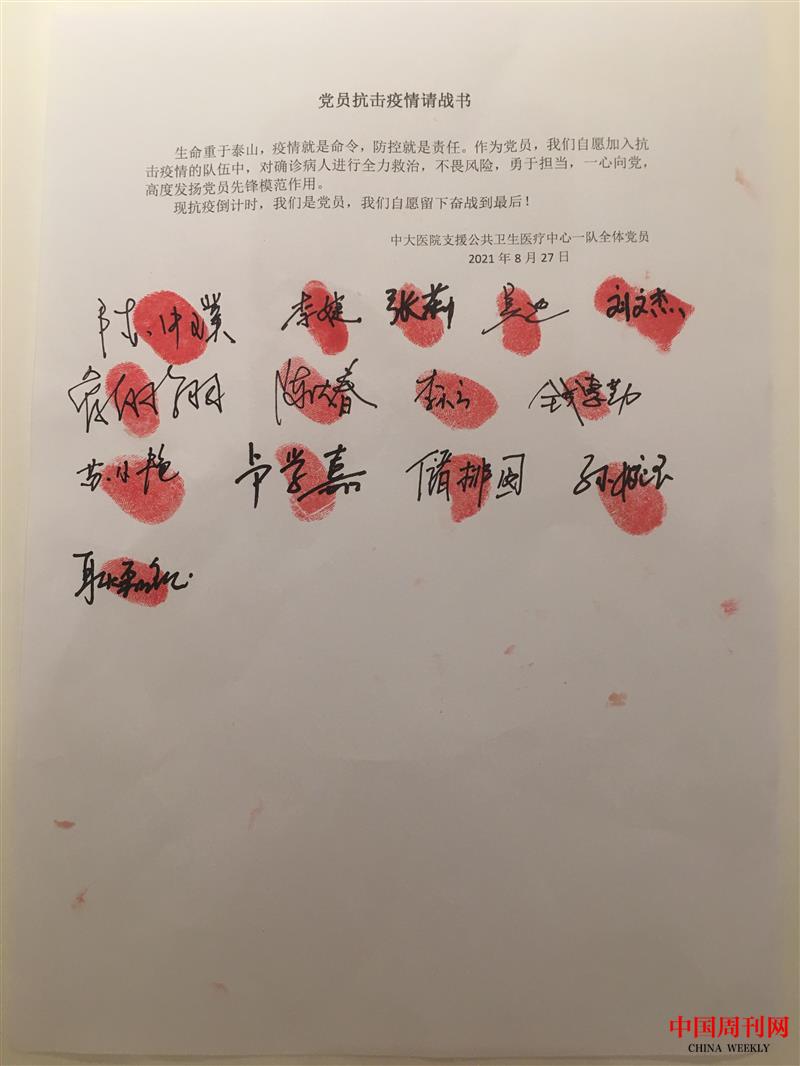 党员抗击疫情请战书
生命重于泰山，疫情就是命令，防控就是责任。作为党员，我们自愿加入抗
击疫情的队伍中，对确诊病人进行全力救治，不畏风险，勇于担当，一心向党，
高度发扬党员先锋模范作用。
现抗疫倒计时，我们是党员，我们自愿留下奋战到最后！
中大医院支援公共卫生医疗中心一队全体党员
2021 年 8 月 27 日
李婕 张莉 刘文杰
陈大春 钱李勤
苏小艳 卢学嘉 储排国
中国周刊网
CHINA WEEKLY